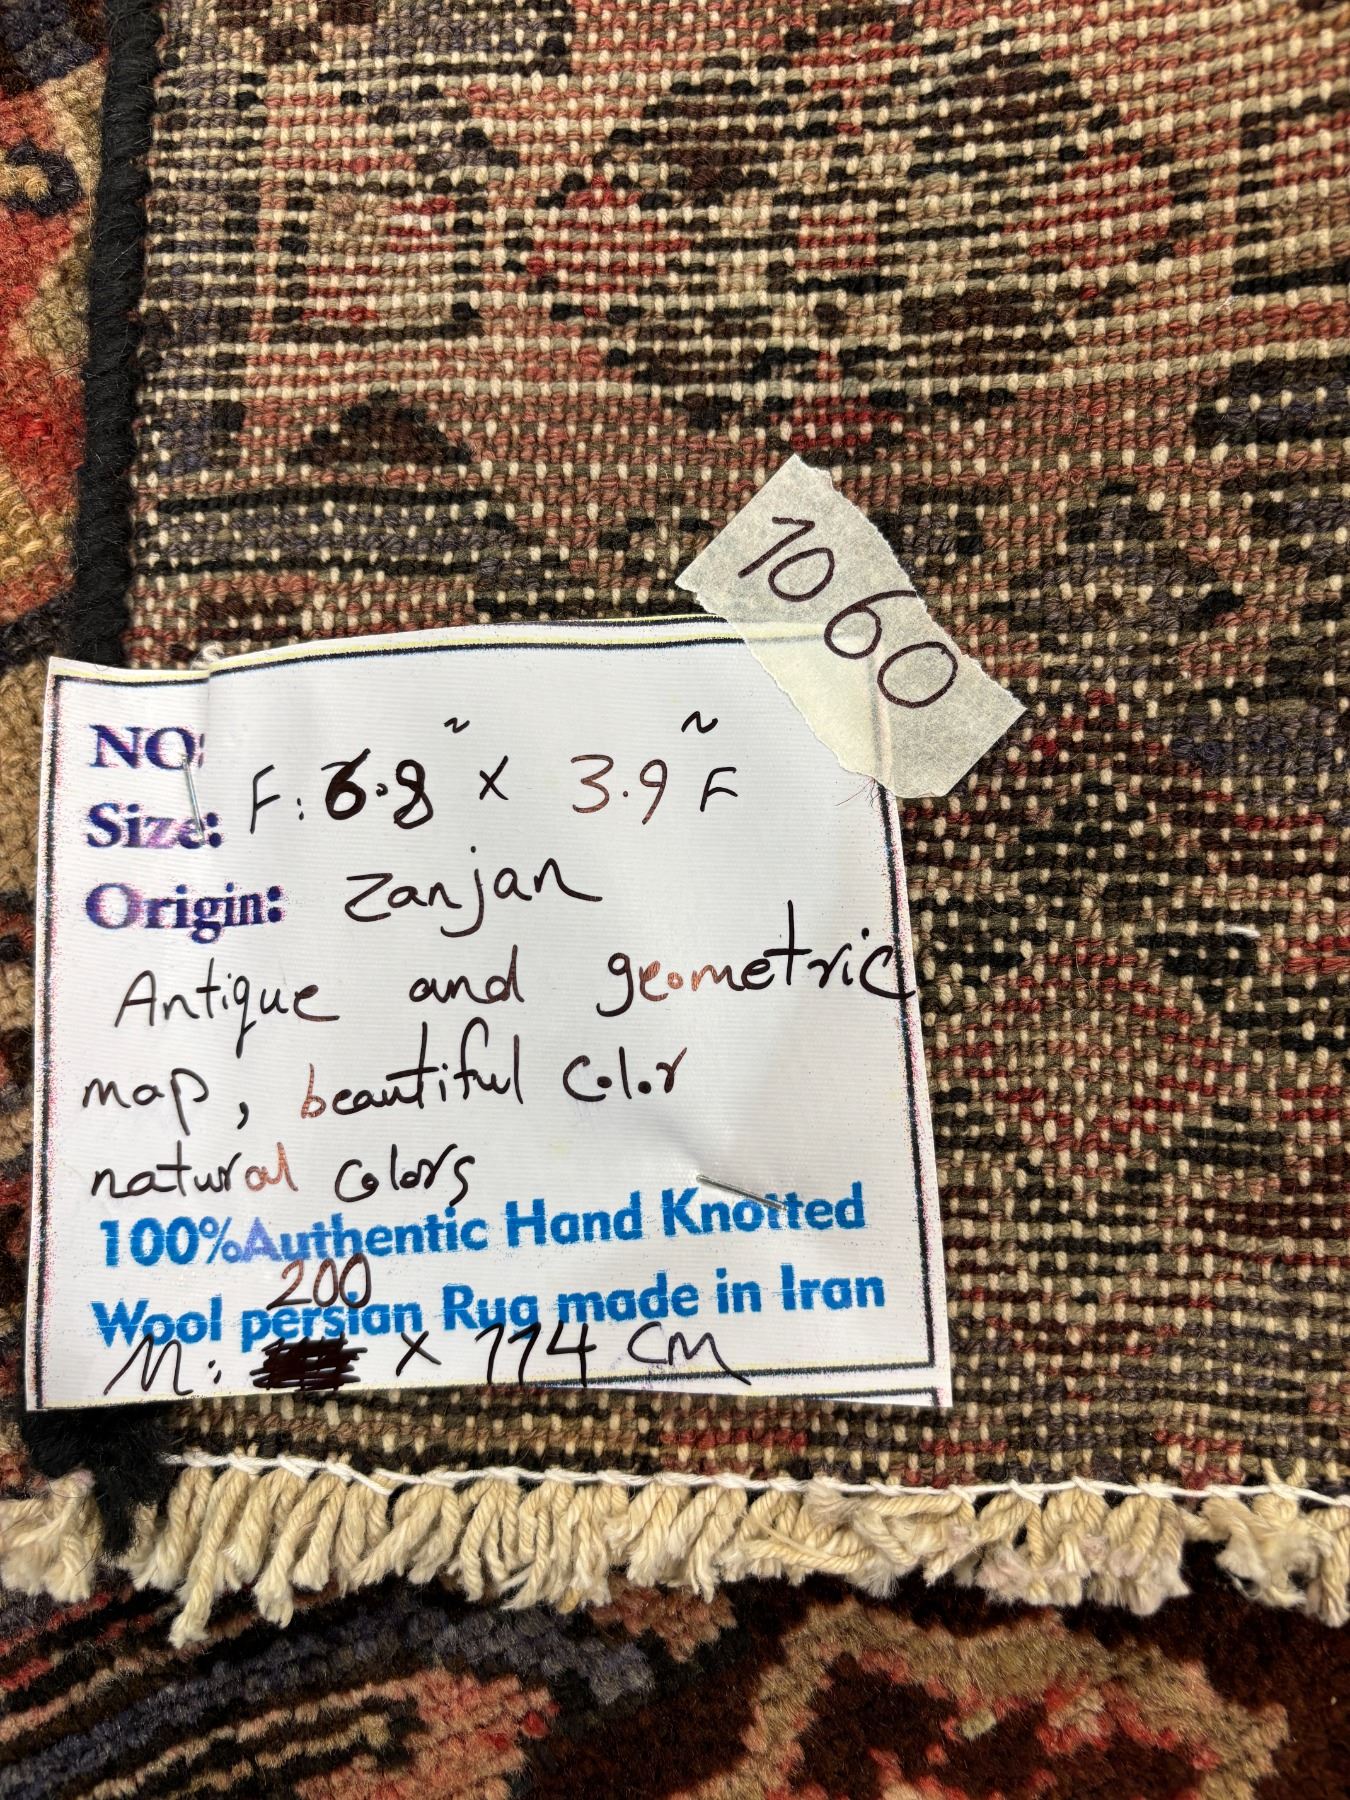 1060
NO:
Size: F: 6.8" x 3.9" F
Origin: Zanjan
Antique and geometric
map, beautiful color
natural colors
100%Authentic Hand Knotted
200
Wool persian Rug made in Iran
M: x 114 CM